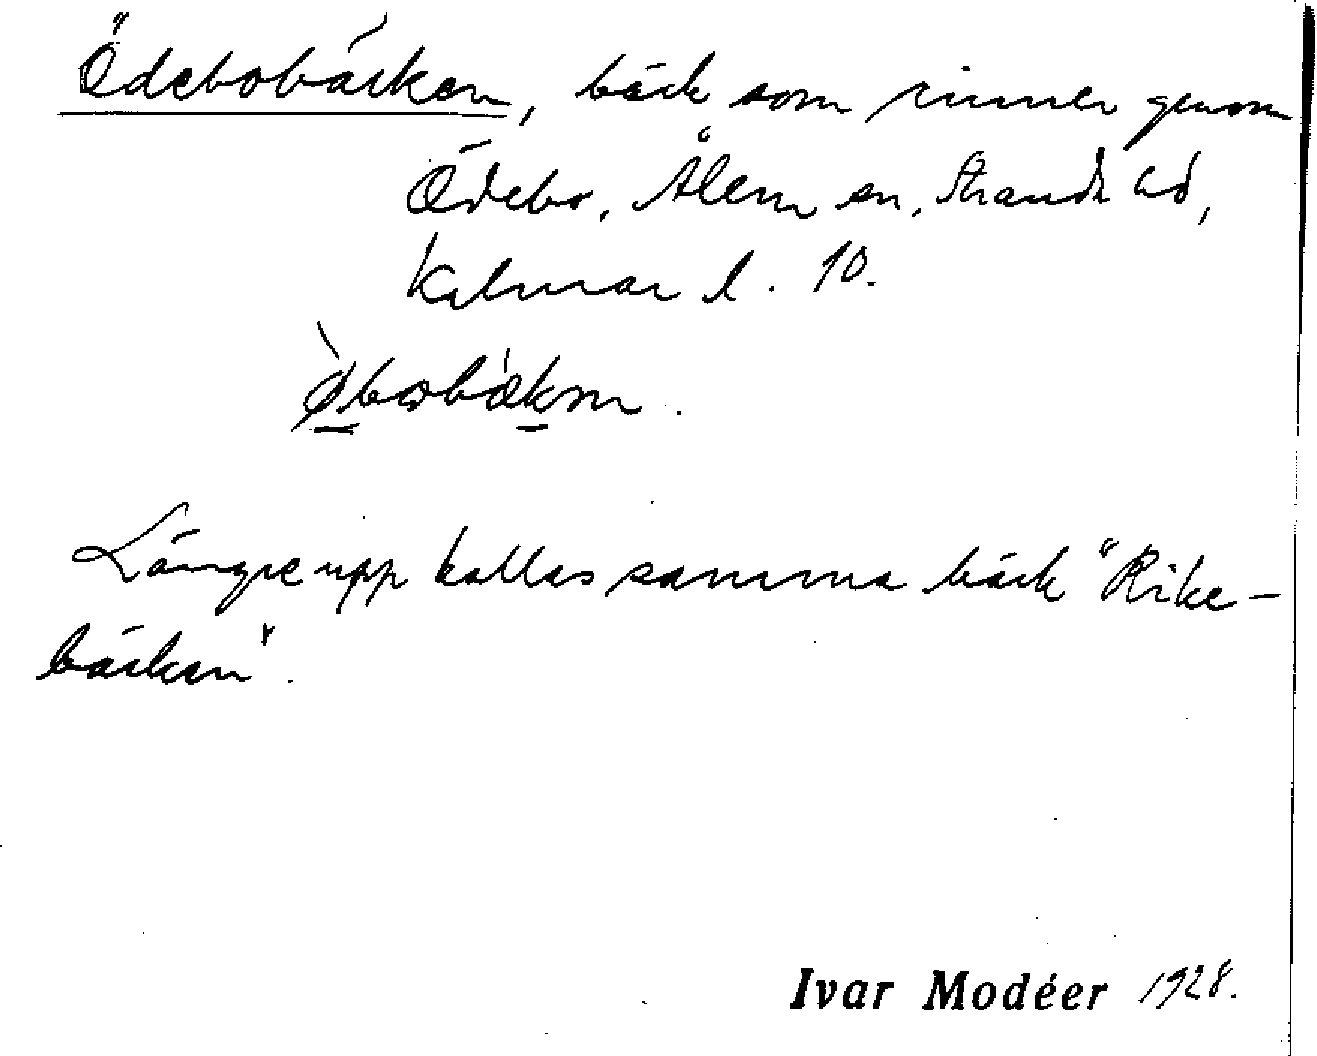 Ödebobäcken, bäck som rinner genom
Ödebo, Ålem sn, Strands hd,
Kalmar l. 10.
Längre upp kallas samma bäck "Rike-
bäcken".
Ivar Modéer 1928.